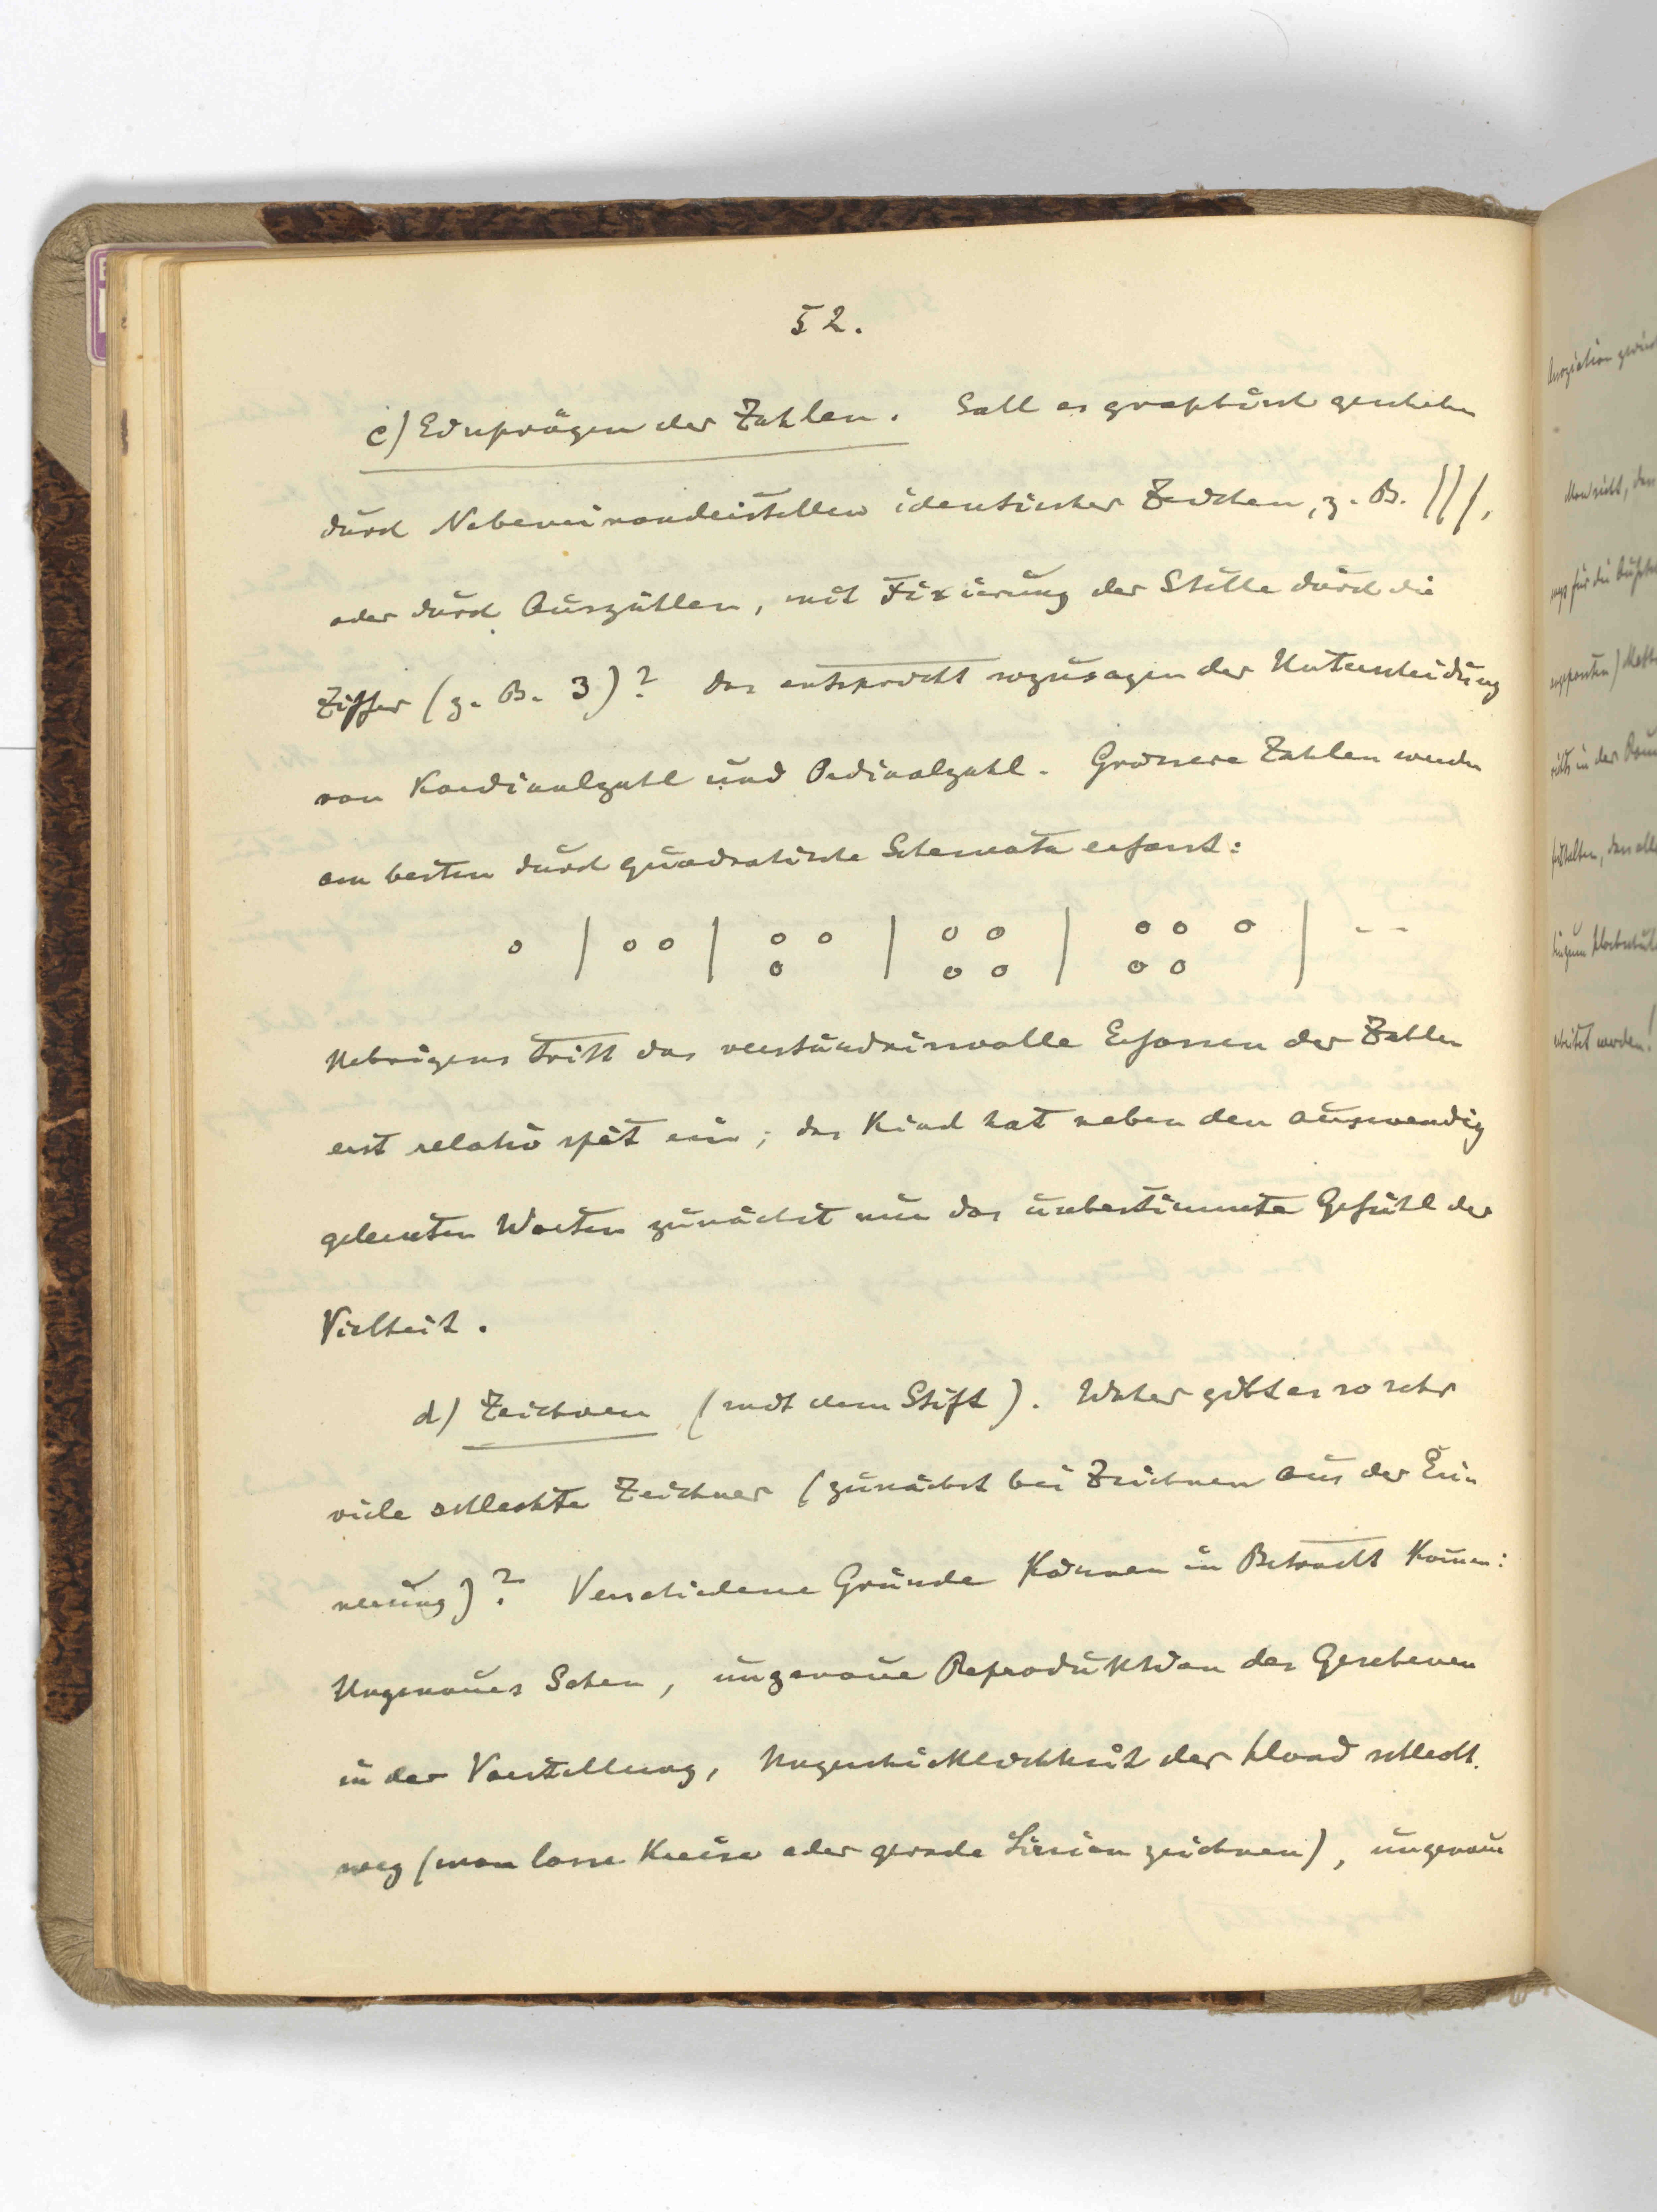 52.
c) Einprägen der Zahlen. Soll es graphisch geschehen
durch Nebeneinanderstellen identischer Zeichen, z. B. |||,
oder durch Auszählen, mit Fixierung der Stelle durch die
Ziffer (z. B. 3)? Das entspricht sozusagen der Unterscheidung
von Kardinalzahl und Ordinalzahl. Grössere Zahlen werden
am besten durch quadratische Schemata erfasst:
o | o o | o o | o o | o o o | - -
o o o o o
Uebrigens tritt das verständnisvolle Erfassen der Zahlen
erst relativ spät ein; das Kind hat neben den auswendig
gelernten Worten zunächst nur das unbestimmte Gefühl der
Vielheit.
d) Zeichnen (mit dem Stift). Woher gibt es so sehr
viele schlechte Zeichner (zunächst bei Zeichnen aus der Erin
nerung)? Verschiedene Gründe können in Betracht kom̄en:
Ungenaues Sehen, ungenaue Reproduktion des Gesehenen
in der Vorstellung, Ungeschicklichkeit der Hand schlecht.
weg (man lasse Kreise oder gerade Linien zeichnen), ungenaue
Assoziation
Man sieht, dass
für die
in der
werden!